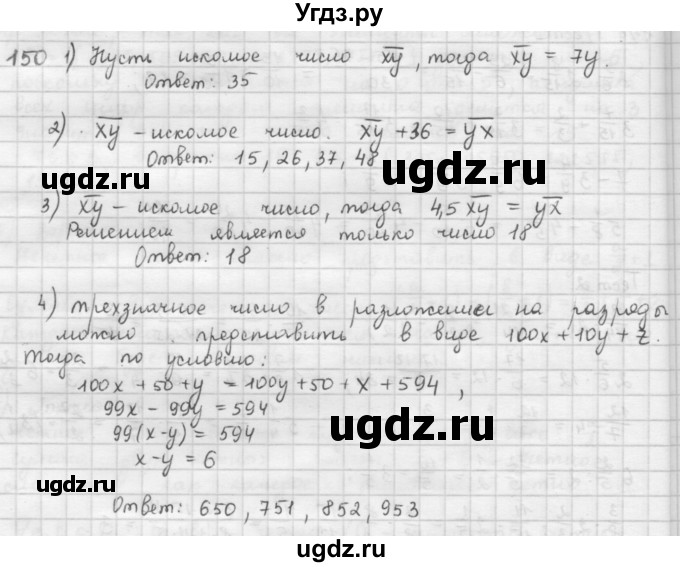 Угдз.ру
150 1) Пусть искомое число x̅y̅, тогда x̅y̅ = 7y.
Ответ: 35
2) x̅y̅ – искомое число. x̅y̅ + 36 = y̅x̅
Ответ: 15, 26, 37, 48
ugdz.ru
ugdz.ru
3) x̅y̅ – искомое число, тогда 4,5 x̅y̅ = y̅x̅
Решением является только число 18
Ответ: 18
ugdz.ru
4) трехзначное число в разложении на разряды
можно представить в виде 100x + 10y + z.
Тогда по условию:
100x + 50 + y = 100y + 50 + x + 594,
99x – 99y = 594
99(x – y) = 594
ugdz.ru
x – y = 6
ugdz.ru
Ответ: 650, 751, 852, 953
ugdz.ru